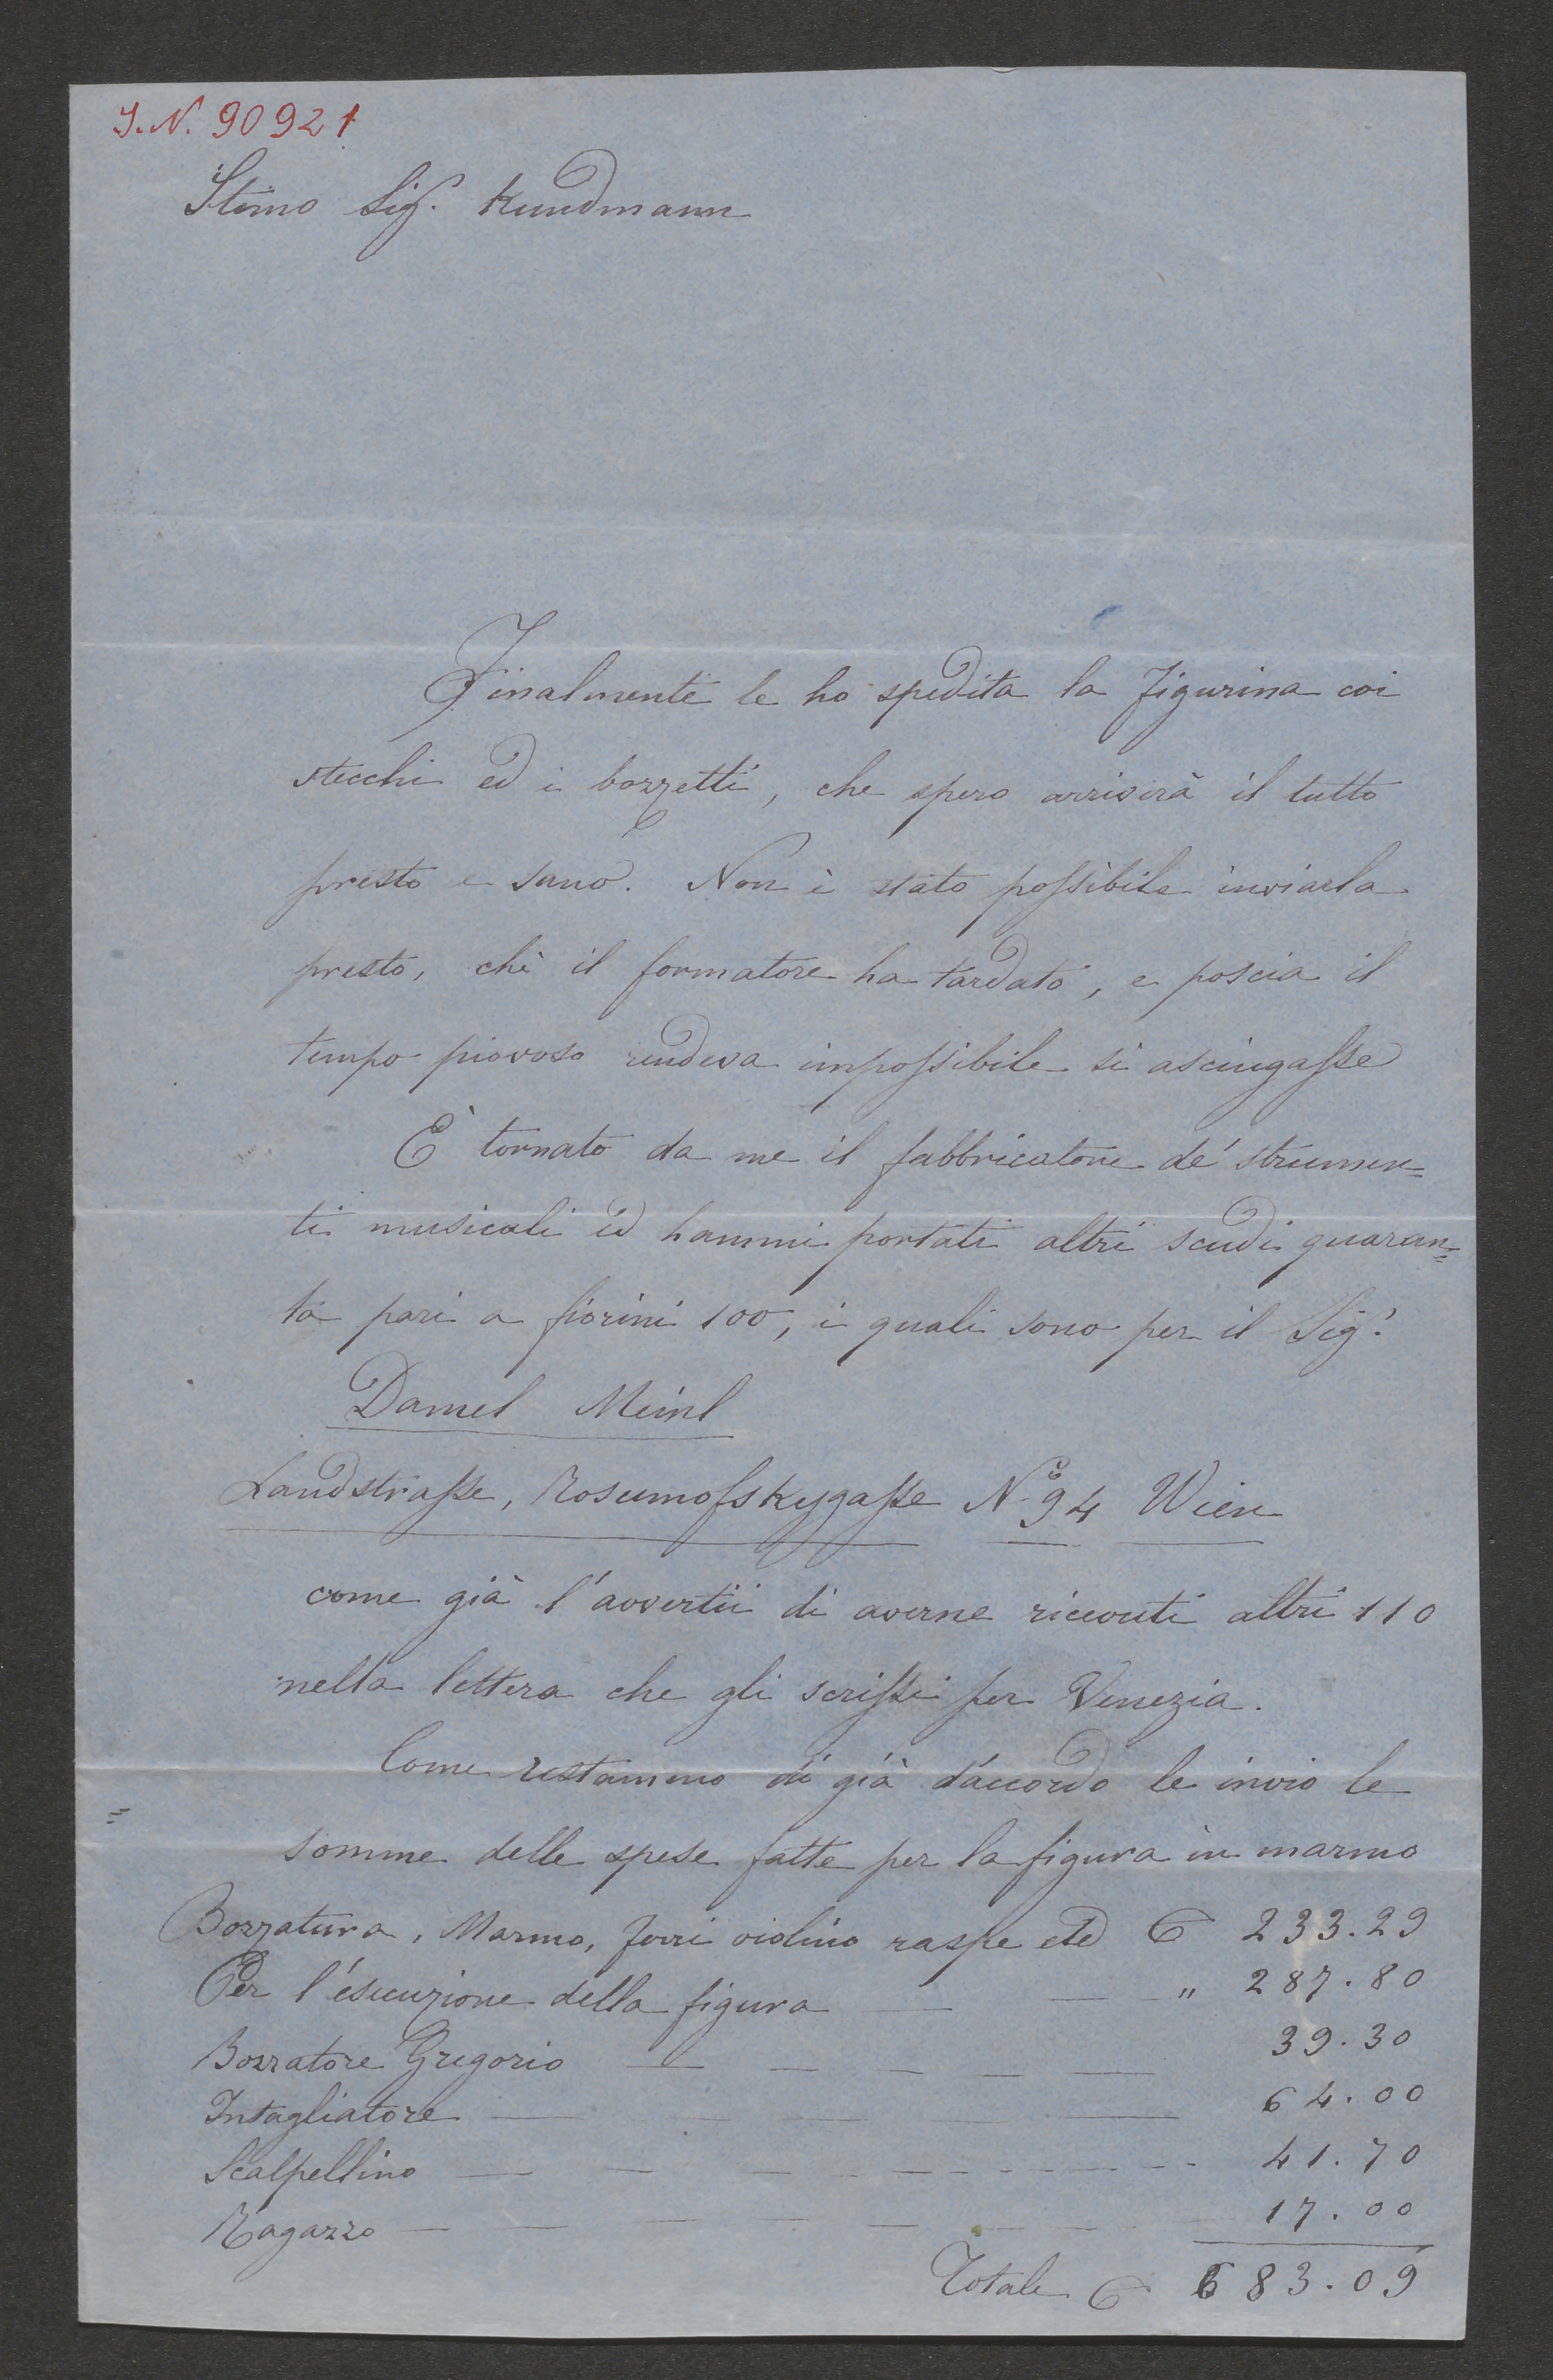 I.N. 90921
Stimo Sig.r Kundmann
Finalmente le ho spedita la figurina coi
stecchi ed i bozzetti, che spero arriverà il tutto
presto e sano. Non è stato possibile inviarla
presto, chè il formatore ha tardato, e poscia il
tempo piovoso rendeva impossibile si asciugasse
È tornato da me il fabbricatore de' strumen=
ti musicali ed hammi portati altri scudi quaran=
ta pari a fiorini 100, i quali sono per il Sig.r
Daniel Meinl
Landstrasse, Rosumofskygasse No 94 Wien
come già l'avvertii di averne ricevuti altri 110
nella lettera che gli scrissi per Venezia.
Come restammo di già d'accordo le invio le
somme delle spese fatte per la figura in marmo
Bozzatura, Marmo, ferri violino raspe etc 233.29
Per l'esecuzione della figura — — — " 287.80
Bozzatore Gregorio — — — — — 39.30
Intagliatore — — — 64.00
Scalpellino — — — — — 41.70
Ragazzo — — — — — 17.00
Totale 683.09